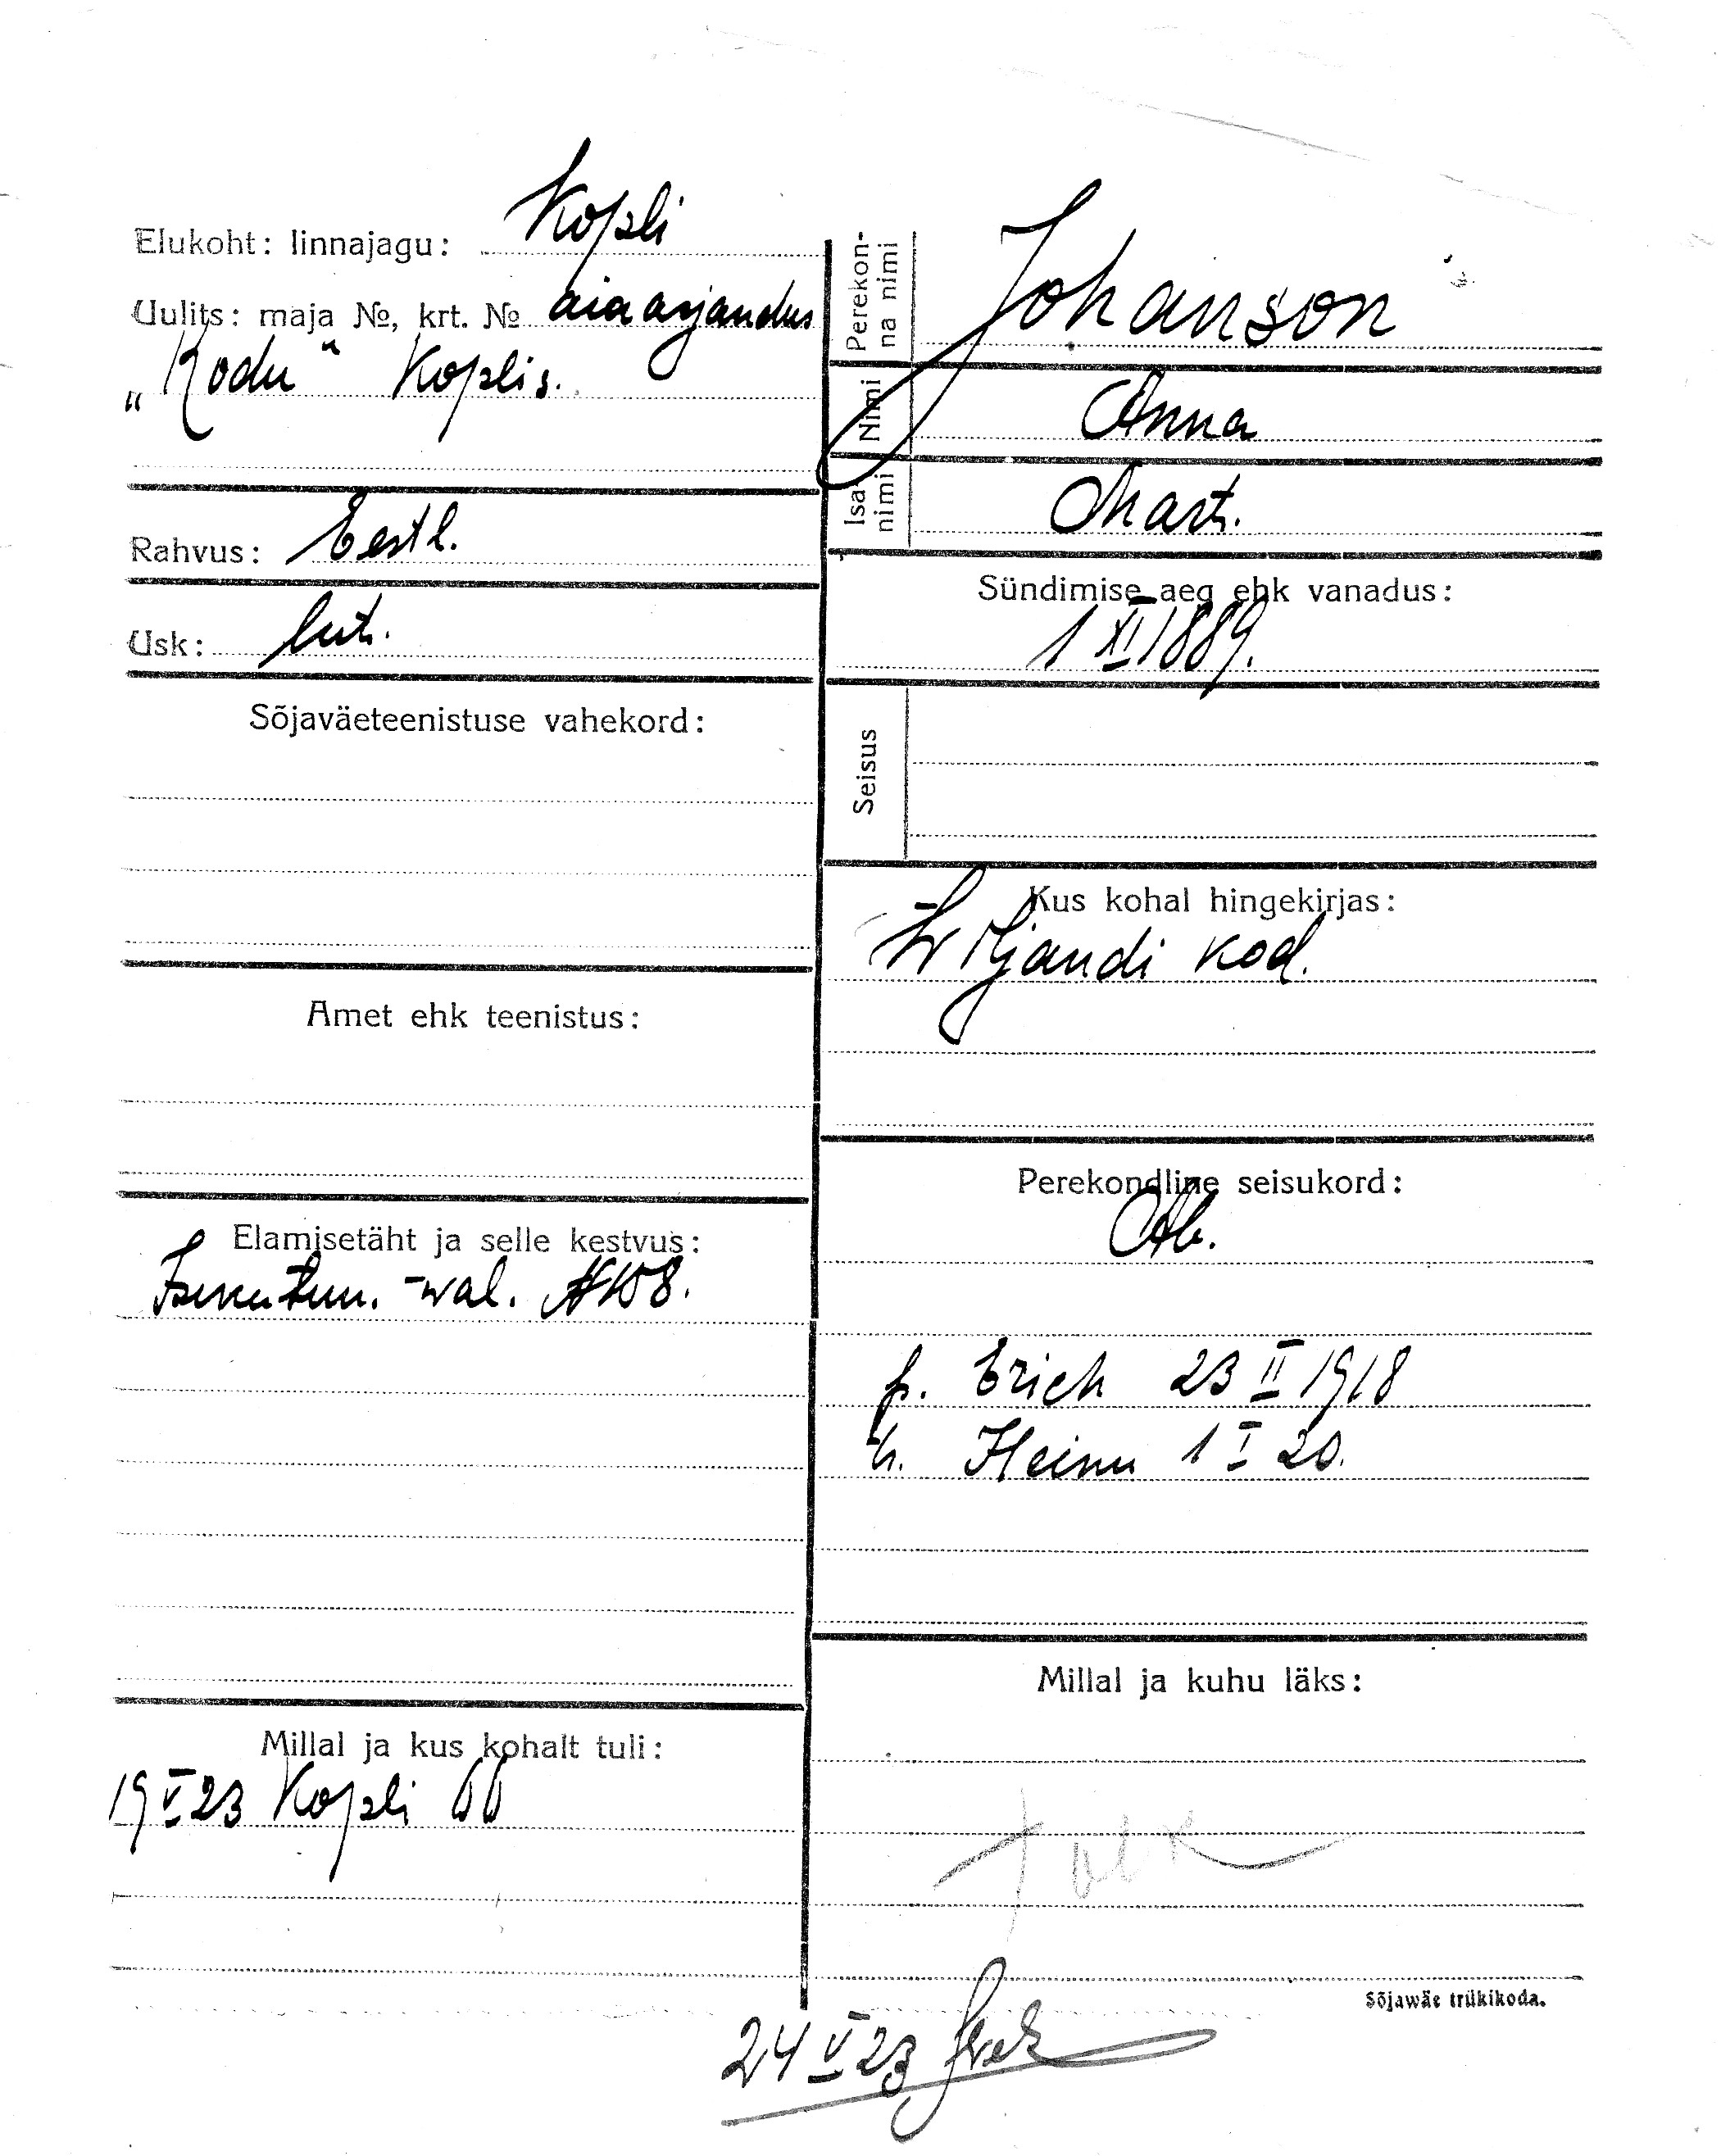 Elukoht: linnajagu: Kopli
Uulits: maja №, krt. № aiaarjandus
„Kodu" Koplis.
Rahvus: Eestl.
Usk: lut.
Sõjaväeteenistuse vahekord:
Amet ehk teenistus:
Elamisetäht ja selle kestvus:
wal. № 108.
Millal ja kus kohalt tuli:
19 V 23 Kopli
Perekon-
na nimi Johanson
Nimi Anna
Isa-
nimi Mart.
Sündimise aeg ehk vanadus:
1 XI 1889.
Seisus
Kus kohal hingekirjas:
Wiljandi kod.
Perekondline seisukord:
Ab.
p. Erich 23 II 1918
1 I 20.
Millal ja kuhu läks:
Sõjawäe trükikoda.
24 V 23